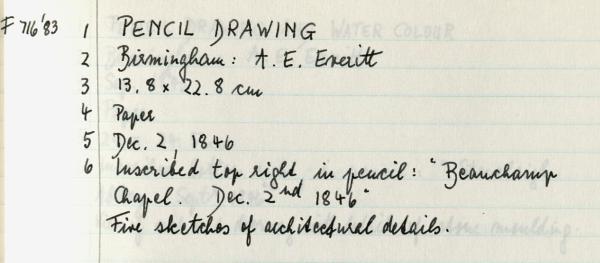 F 716'83 1 PENCIL DRAWING
2 Birmingham: A. E. Everitt
3 13.8 x 22.8 cm
4 Paper
5 Dec. 2 1846
6 Inscribed top right in pencil: "Beauchamp
Chapel. Dec. 2nd 1846"
Five sketches of architectural details.